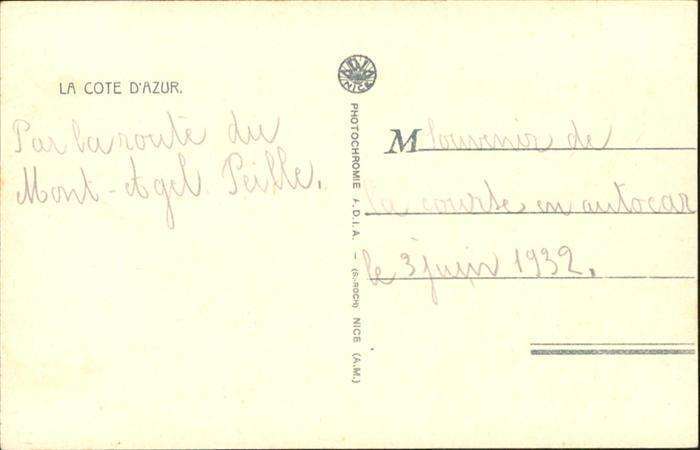 LA COTE D'AZUR.
Par la route du
Mont-Agel Peille.
ADIA
NICE
PHOTOCHROMIE A.D.I.A. - (St-ROCH) NICE (A.M.)
M Souvenir de
la course en autocar
le 3 juin 1932.